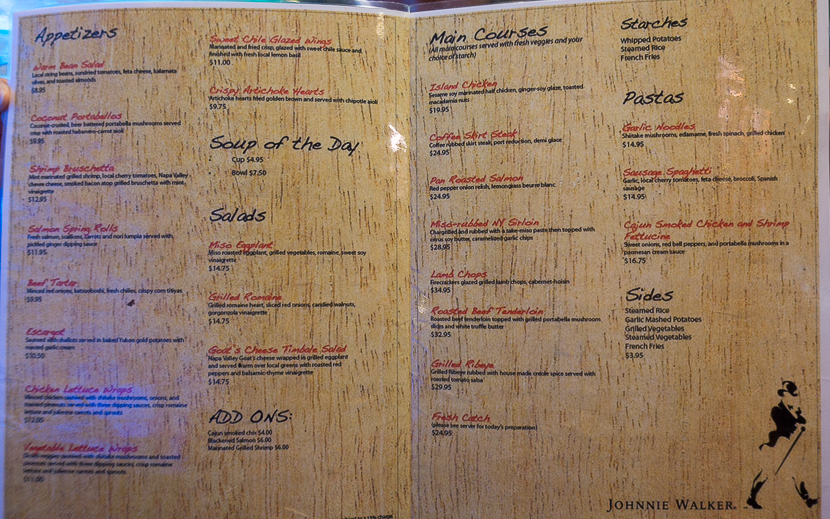 Appetizers
Warm Bean Salad
Local string beans, sundried tomatoes, feta cheese, kalamata
olives, and toasted almonds
$8.95
Coconut Portabellos
Coconut-crusted, beer battered portabella mushrooms served
crisp with roasted habanero-carrot aioli
$9.95
Shrimp Bruschetta
Mint marinated grilled shrimp, local cherry tomatoes, Napa Valley
chevre cheese, smoked bacon atop grilled bruschetta with mint
vinaigrette
$12.95
Salmon Spring Rolls
Fresh salmon, scallions, carrots and nori lumpia served with
pickled ginger dipping sauce
$11.95
Beef Tartar
Minced red onions, katsuobushi, fresh chilies, crispy corn
$9.95
Escargot
served in baked Yukon gold potatoes with
roasted garlic cream
$10.50
Chicken Lettuce Wraps
Minced chicken sauteed with shiitake mushrooms, onions, and
roasted peanuts served with three dipping sauces, crisp romaine
lettuce and julienne carrots and sprouts
$12.95
Vegetable Lettuce Wraps
veggies sauteed with shiitake mushrooms and roasted
peanuts served with three dipping sauces, crisp romaine
lettuce and julienne carrots and sprouts
$11.00
Sweet Chile Glazed Wings
Marinated and fried crisp, glazed with sweet chile sauce and
finished with fresh local lemon basil
$11.00
Crispy Artichoke Hearts
Artichoke hearts fried golden brown and served with chipotle aioli
$9.75
Soup of the Day
Cup $4.95
Bowl $7.50
Salads
Miso Eggplant
Miso roasted eggplant, grilled vegetables, romaine, sweet soy
vinaigrette
$14.75
Grilled Romaine
Grilled romaine heart, sliced red onions, candied walnuts,
gorgonzola vinaigrette
$14.75
Goat's Cheese Timbale Salad
Napa Valley Goat's cheese wrapped in grilled eggplant
and served warm over local greens with roasted red
peppers and balsamic-thyme vinaigrette
$14.75
ADD ONS:
Cajun smoked chix $4.00
Blackened Salmon $6.00
Marinated Grilled Shrimp $6.00
Main Courses
(All main courses served with fresh veggies and your
choice of starch)
Island Chicken
Sesame soy marinated half chicken, ginger-soy glaze, toasted
macadamia nuts
$19.95
Coffee Skirt Steak
Coffee rubbed skirt steak, port reduction, demi glace
$24.95
Pan Roasted Salmon
Red pepper onion relish, lemongrass beurre blanc
$24.95
Miso-rubbed NY Sirloin
Chargrilled and rubbed with a sake-miso paste then topped with
citrus soy butter, caramelized garlic chips
$28.95
Lamb Chops
Firecrackers glazed grilled lamb chops, cabernet-hoisin
$34.95
Roasted Beef Tenderloin
Roasted beef tenderloin topped with grilled portabella mushrooms
slices and white truffle butter
$32.95
Grilled Ribeye
Grilled Ribeye rubbed with house made creole spice served with
roasted tomato salsa
$29.95
Fresh Catch
(please see server for today's preparation)
$24.95
Starches
Whipped Potatoes
Steamed Rice
French Fries
Pastas
Garlic Noodles
Shiitake mushrooms, edamame, fresh spinach, grilled chicken
$14.95
Sausage Spaghetti
Garlic, local cherry tomatoes, feta cheese, broccoli, Spanish
sausage
$14.95
Cajun Smoked Chicken and Shrimp
Fettucine
Sweet onions, red bell peppers, and portabella mushrooms in a
parmesan cream sauce
$16.75
Sides
Steamed Rice
Garlic Mashed Potatoes
Grilled Vegetables
Steamed Vegetables
French Fries
$3.95
JOHNNIE WALKER